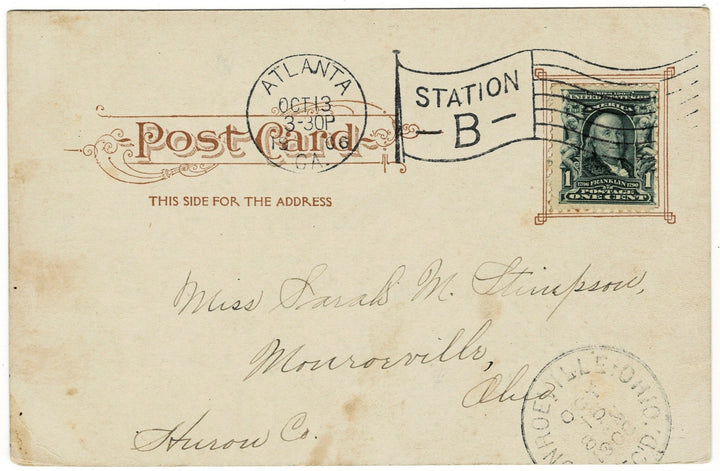 ATLANTA
OCT 13
3-30P
19 06
GA.
STATION
-B-
Post Card
THIS SIDE FOR THE ADDRESS
UNITED STATES OF
AMERICA
1 1706 FRANKLIN 1790 1
POSTAGE
ONE CENT
Miss Sarah M. Stimpson,
Monroeville,
Ohio
Huron Co.
NROEVILLE, OHIO.
REC'D.